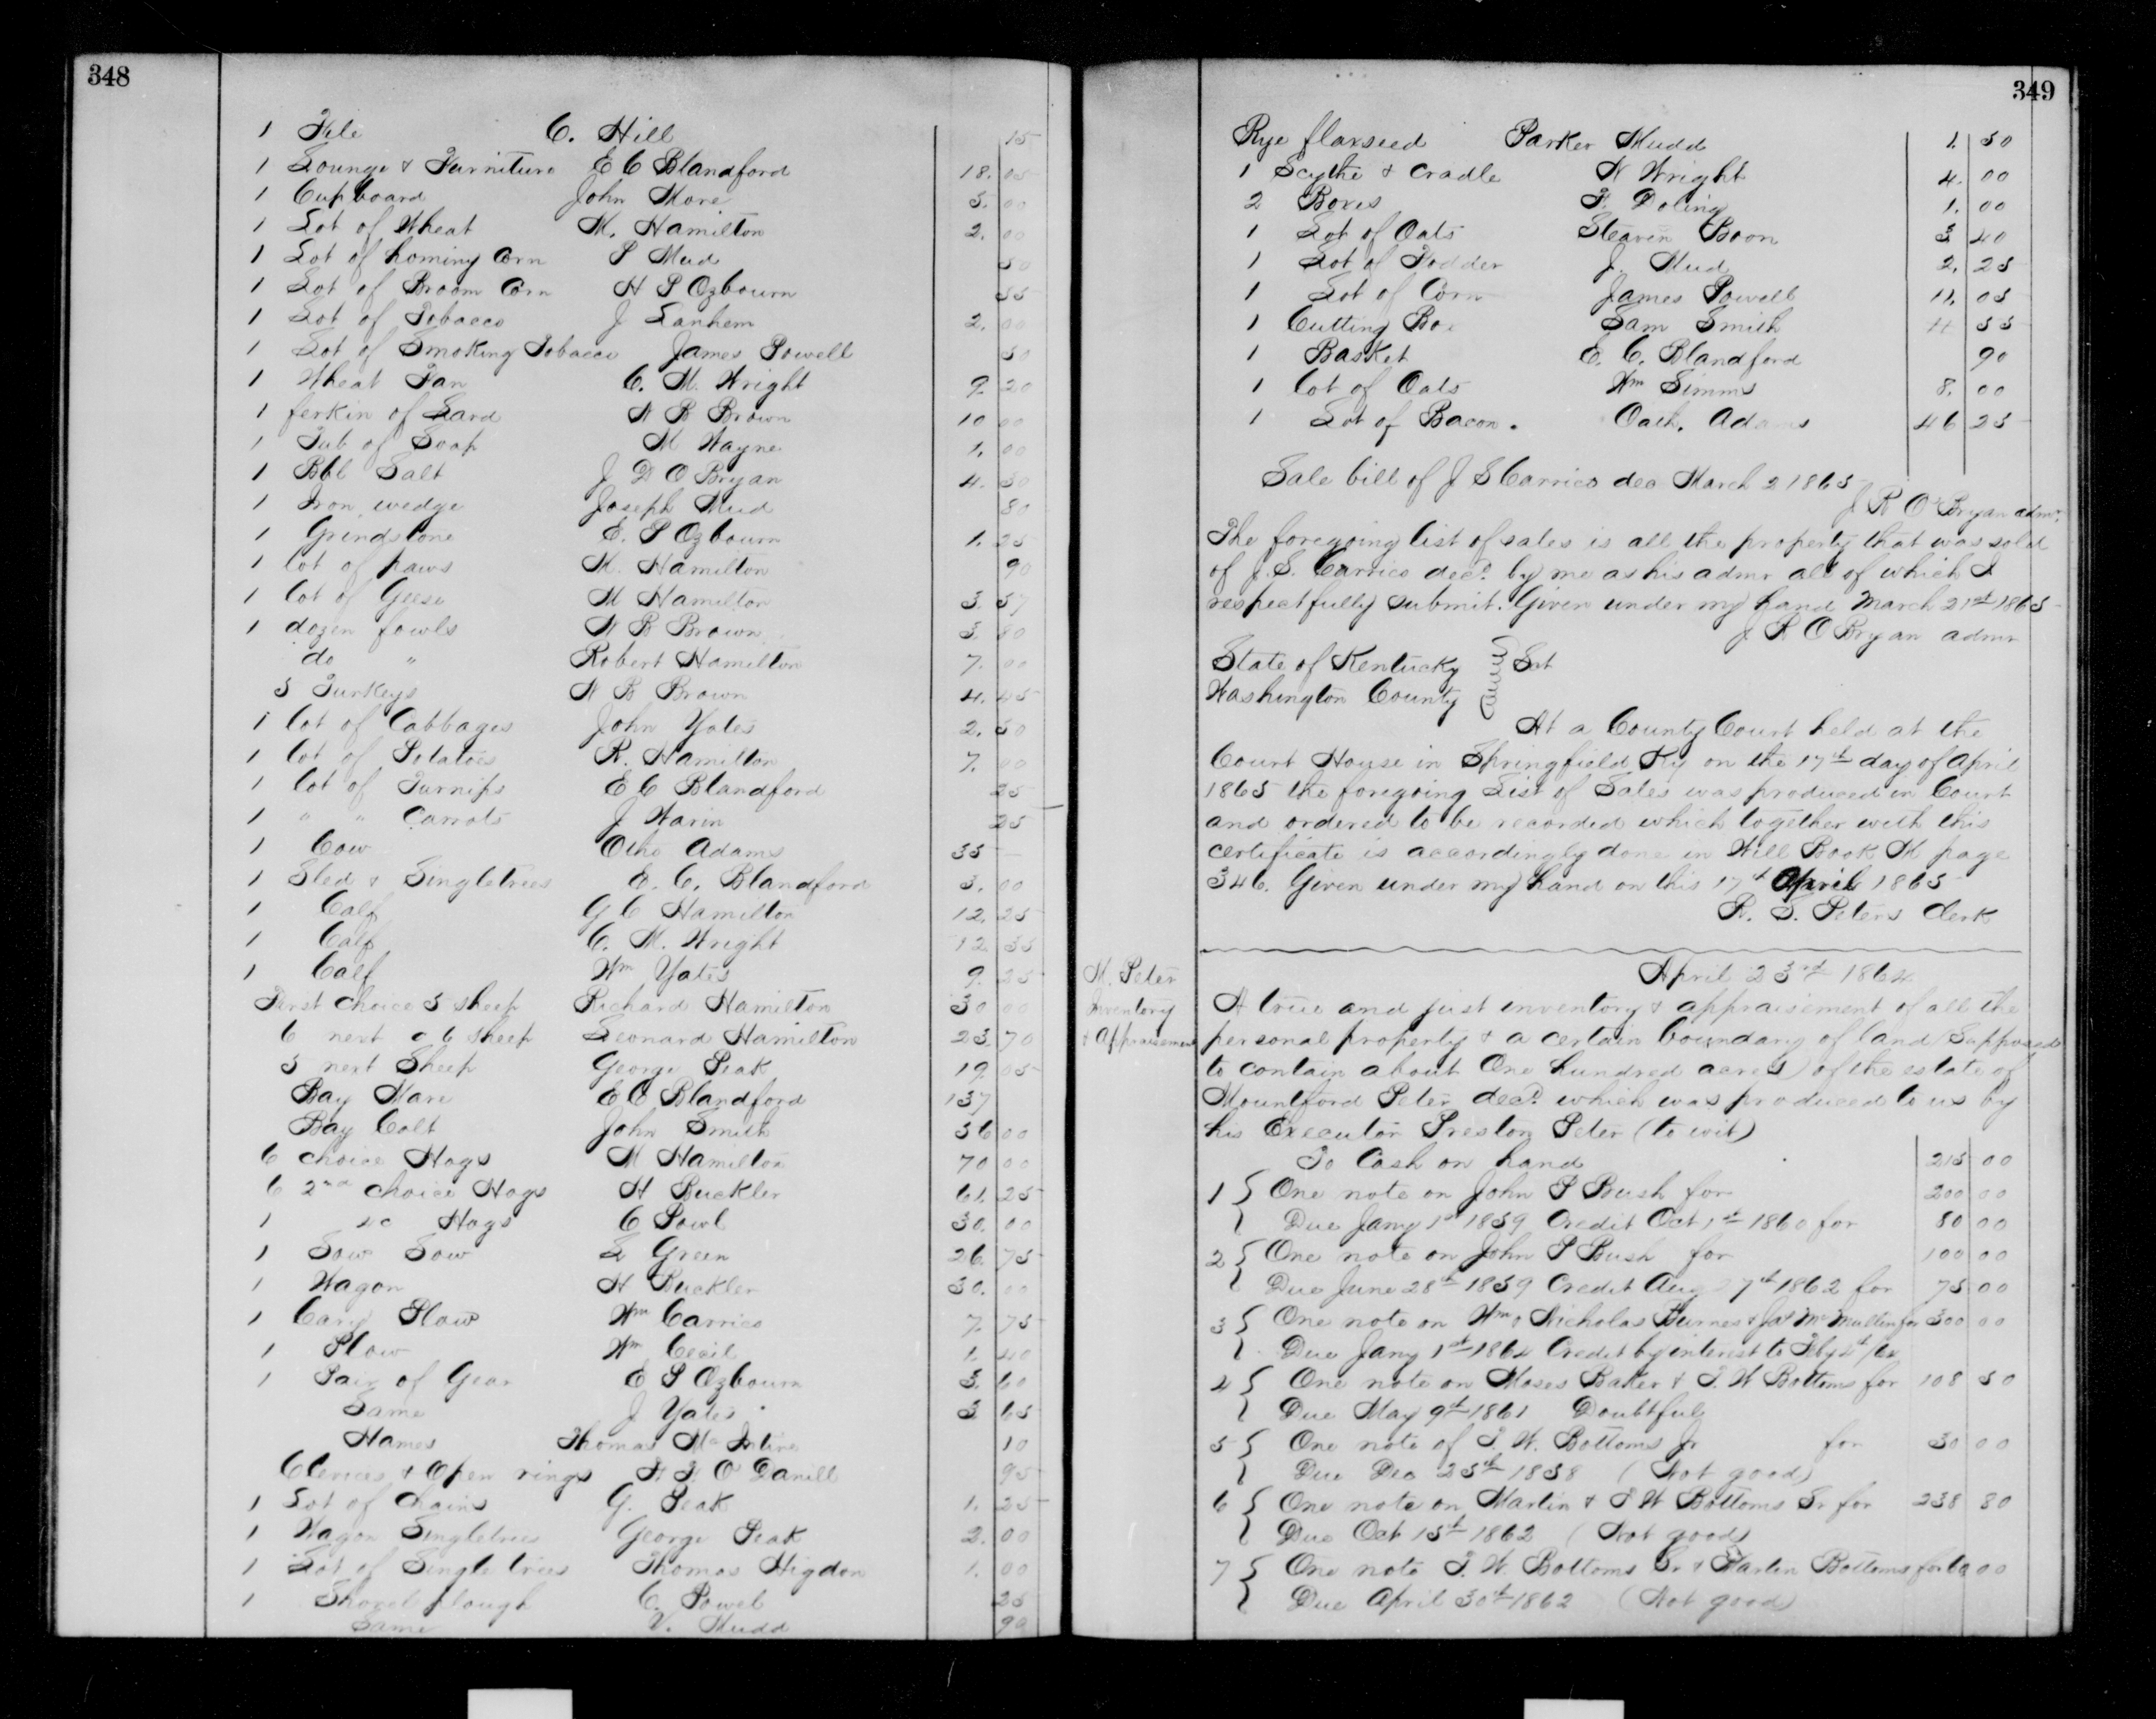 348
1 File C. Hill 15
1 Lounge & Furniture E C Blandford 18. 05
1 Cupboard John More 5. 00
1 Lot of Wheat M. Hamilton 2. 00
1 Lot of hominy Corn P Mud 50
1 Lot of Broom Corn H P Ozbourn 55
1 Lot of Tobacco J Lanhem 2. 00
1 Lot of Smoking Tobacco James Powell 50
1 Wheat Fan C. M. Wright 9. 20
1 ferkin of Lard N B Brown 10 00
1 Tub of Soap M Wayne 1. 00
1 Bbl Salt J D O Bryan 4. 50
1 Iron wedge Joseph Mud 80
1 Grindstone E. P Ozbourn 1. 25
1 lot of paws M. Hamilton 90
1 lot of Geese M Hamilton 3. 37
1 dozen fowls N B Brown 3. 80
do " Robert Hamilton 7. 00
5 Turkeys N B Brown 4. 45
1 lot of Cabbages John Yates 2. 50
1 lot of Potatoes R. Hamilton 7. 00
1 lot of Turnips E C Blandford 25
1 " " Carrots J Warin 25
1 Cow Otho Adams 35
1 Sled & Singletrees E. C. Blandford 3. 00
1 Calf G C Hamilton 12. 25
1 Calf C. M. Wright 12. 35
1 Calf Wm Yates 9. 25
First choice 5 sheep Richard Hamilton 30 00
6 next c 6 sheep Leonard Hamilton 23. 70
5 next Sheep George Peak 19. 05
Bay Mare E C Blandford 137
Bay Colt John Smith 36 00
6 choice Hogs M Hamilton 70 00
6 2nd choice Hogs H Buckler 61. 25
1 Hogs C Powl 30. 00
1 Sow Sow L Green 26. 75
1 Wagon H Buckler 30. 00
1 Cary Plow Wm Carrico 7. 75
1 Plow Wm Cecil 1. 40
1 Pair of Gear E P Ozbourn 3. 60
Same J Yates 3 65
Hames Thomas McIntire 10
Clevices & Open rings O Daniell 95
1 Lot of Chains G. Peak 1. 25
1 Wagon Singletrees George Peak 2. 00
1 Lot of Single trees Thomas Higdon 1. 00
1 Shovel plough C. Powel 25
Same V. Mudd 90
349
Rye flaxseed Parker Mudd 1. 50
1 Scythe & Cradle N Wright 4. 00
2 Boxes F. Doling 1. 00
1 Lot of Oats Steaven Boon 3 40
1 Lot of Fodder J. Mud 2. 25
1 Lot of Corn James Powell 11. 05
1 Cutting Box Sam Smith 4 55
1 Basket E. C. Blandford 90
1 lot of Oats Wm Simms 8. 00
1 Lot of Bacon. Oath. Adams 46 25
Sale bill of J S Carrico dec March 2 1865
J R O'Bryan admr.
The foregoing list of sales is all the property that was sold
of J. S. Carrico decd. by me as his admr all of which I
respectfully submit. Given under my hand March 21st 1865
J R O Bryan admr
State of Kentucky } Sct
Washington County
At a County Court held at the
Court House in Springfield Ky on the 17th day of April
1865 the foregoing List of Sales was produced in Court
and ordered to be recorded which together with this
certificate is accordingly done in Will Book M page
346. Given under my hand on this 17th April 1865
R. S. Peters Clerk
April 23rd 1864
M. Peter
Inventory
& Appraisement
A true and just inventory & appraisement of all the
personal property & a certain boundary of land (Supposed
to contain about One hundred acres) of the estate of
Mountford Peter decd. which was produced to us by
his Executor Preston Peter (to wit)
To Cash on hand 215 00
1 { One note on John P Bush for 200 00
Due Jany 1st 1859 Credit Oct 1st 1860 for 50 00
2 { One note on John P Bush for 100 00
Due June 28th 1859 Credit Aug 7th 1862 for 75 00
3 { One note on Wm & Nicholas Furnes & Jas McMullin for 300 00
Due Jany 1st 1864 Credit by interest to Feby 4th/64
4 { One note on Moses Baker & T. W Bottoms for 108 50
Due May 9th 1861 Doubtful
5 { One note of T. W. Bottoms Jr for 30 00
Due Dec 25th 1858 (Not good)
6 { One note on Martin & T W Bottoms Sr for 238 80
Due Oct 15th 1862 (Not good)
7 { One note T. W. Bottoms Sr & Martin Bottoms for 00
Due April 30th 1862 (Not good)